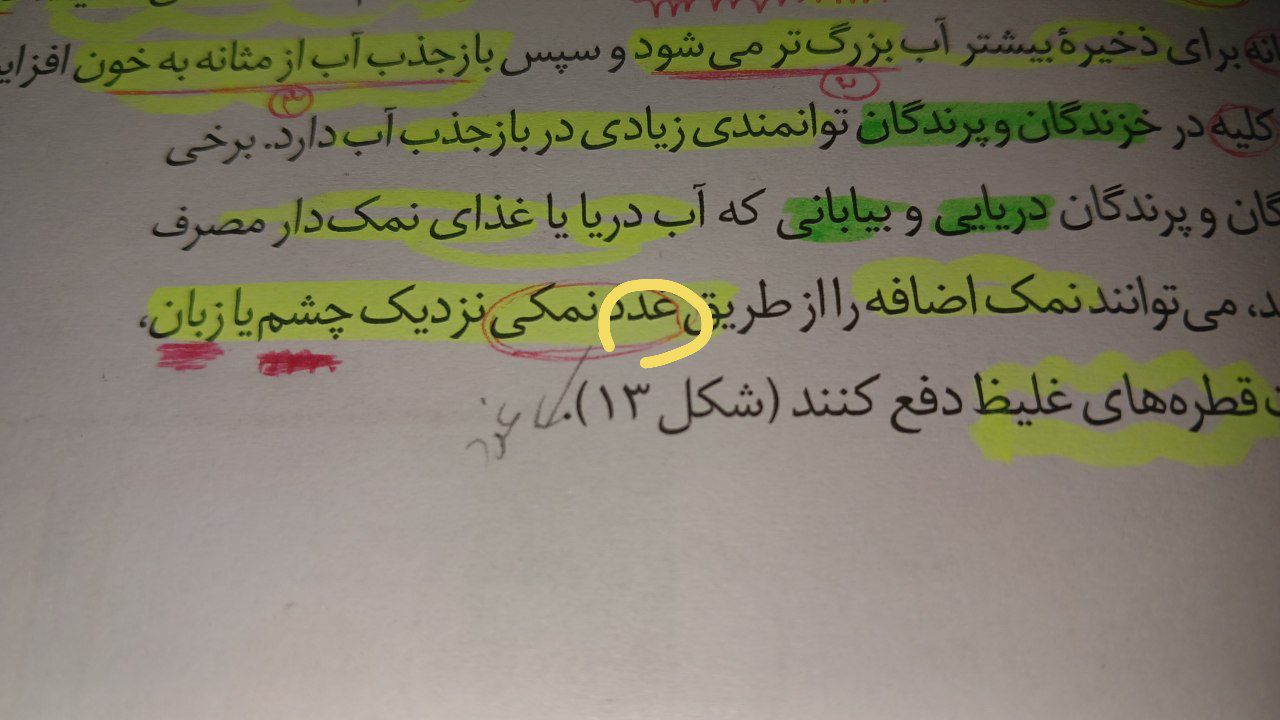 برای ذخیرهٔ بیشتر آب بزرگ‌تر می‌شود و سپس بازجذب آب از مثانه به خون
کلیه در خزندگان و پرندگان توانمندی زیادی در بازجذب آب دارد. برخی
و پرندگان دریایی و بیابانی که آب دریا یا غذای نمک‌دار مصرف
می‌توانند نمک اضافه را از طریق غدد نمکی نزدیک چشم یا زبان،
قطره‌های غلیظ دفع کنند (شکل ۱۳).